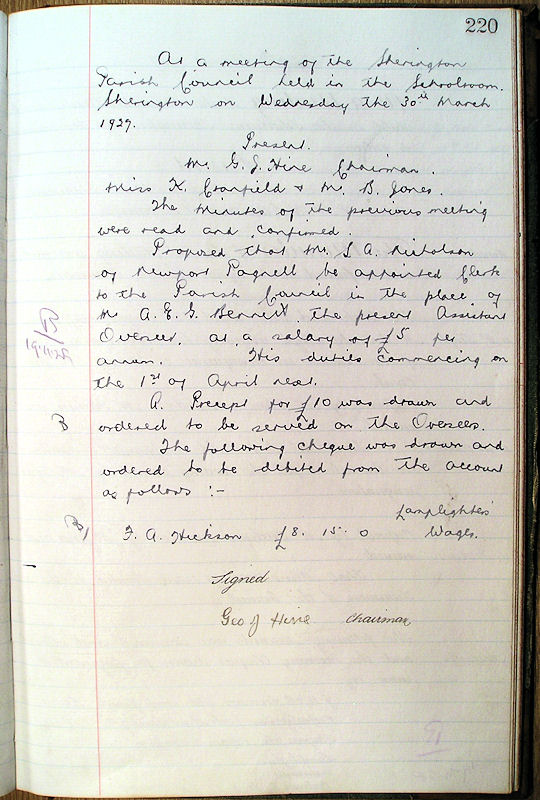 220
At a meeting of the Sherington
Parish Council held in the Schoolroom.
Sherington on Wednesday the 30th March
1927.
Present.
Mr. G. J. Hine Chairman.
Miss K. Cranfield & Mr. B. Jones.
The Minutes of the previous meeting
were read and confirmed.
Proposed that Mr. S A. Nicholson
of Newport Pagnell be appointed Clerk
to the Parish Council in the place of
Mr A. E. G. Bennett the present Assistant
Overseer. at a salary of £5 per
annum. His duties commencing on
the 1st of April next.
A. Precept for £10 was drawn and
ordered to be served on the Overseers.
The following cheque was drawn and
ordered to be debited from the account
as follows :-
Lamplighters
F. A. Hickson £8. 15. 0 Wages.
Signed
Geo J Hine Chairman